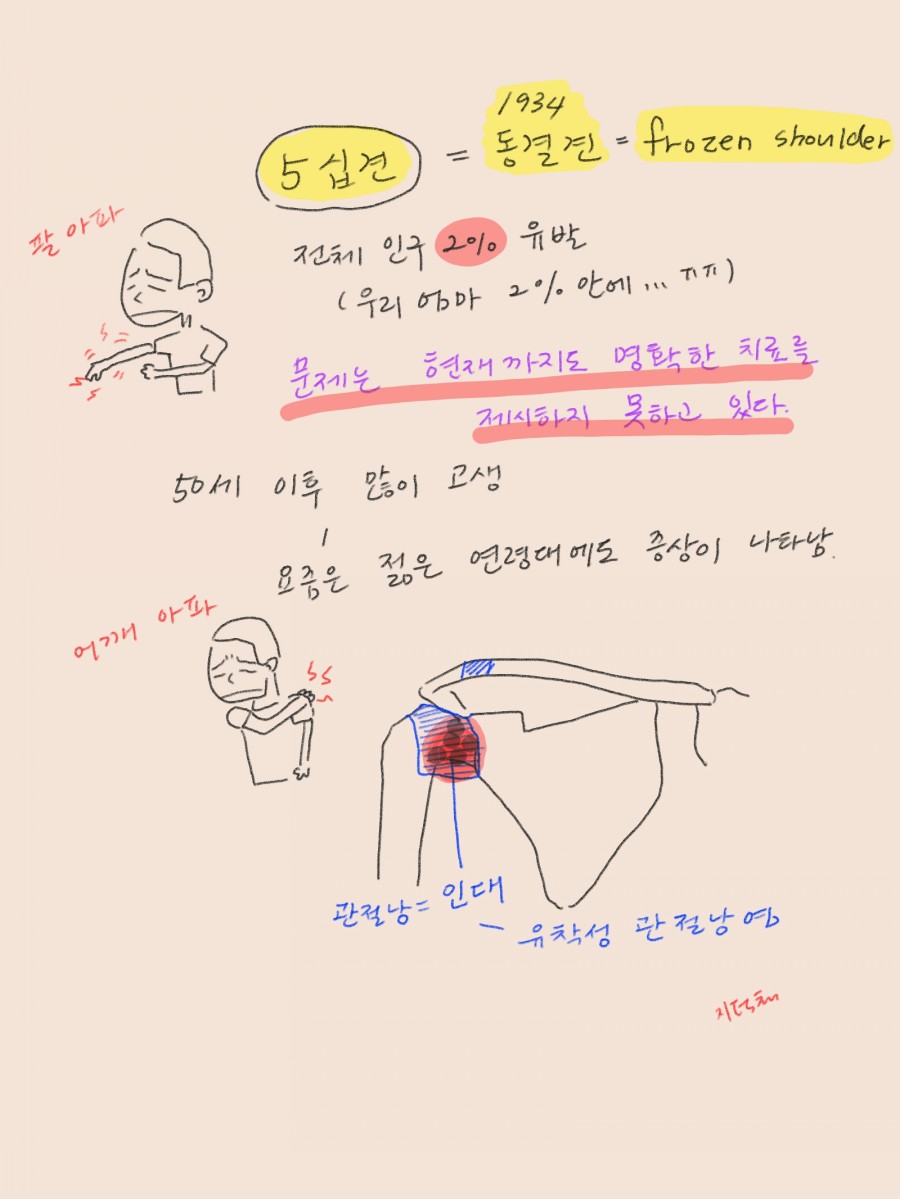 1934
5십견 = 동결견 = frozen shoulder
팔 아파
전체 인구 20% 유발
(우리 엄마 2% 안에... ㅠㅠ)
문제는 현재까지도 명확한 치료를
제시하지 못하고 있다.
50세 이후 많이 고생
요즘은 젊은 연령대에도 증상이 나타남.
어깨 아파
관절낭 = 인대
- 유착성 관절낭염